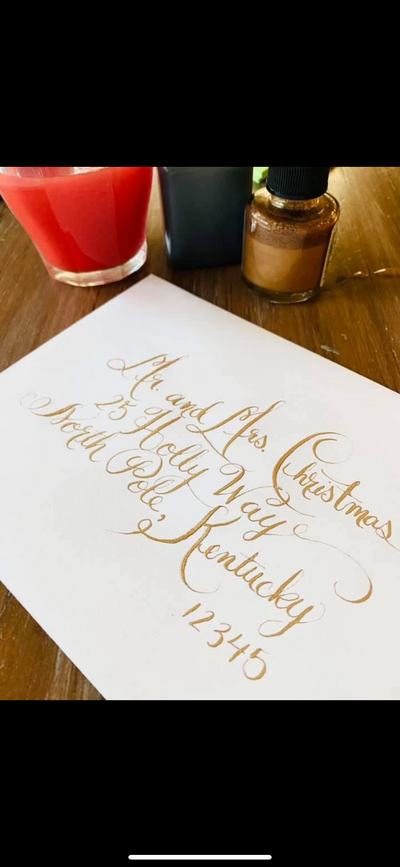 Mr. and Mrs. Christmas
25 Holly Way
North Pole, Kentucky
12345